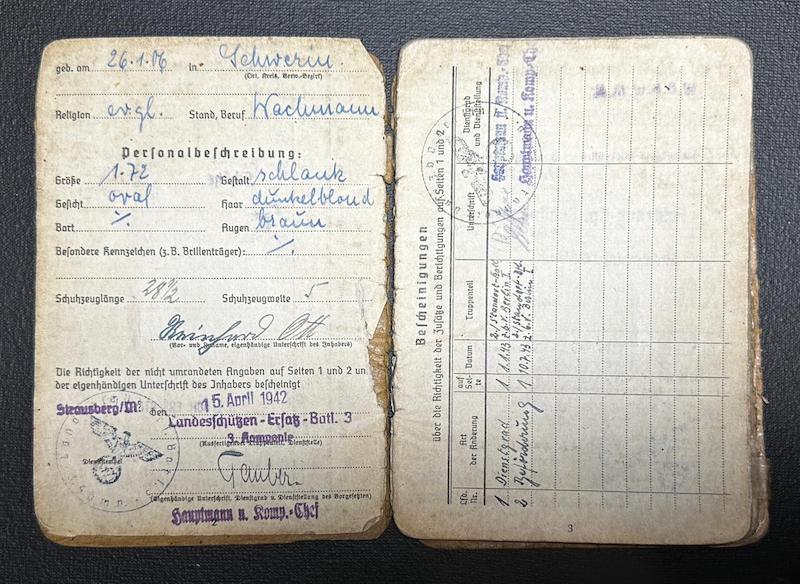 geb. am 26.1.06 in Schwerin
(Ort, Kreis, Verw.-Bezirk)
Religion evgl. Stand, Beruf Wachmann
Personalbeschreibung:
Größe 1.72 Gestalt schlank
Gesicht oval Haar dunkelblond
Bart ./. Augen braun
Besondere Kennzeichen (z.B. Brillenträger): ./.
Schuhzeuglänge 28½ Schuhzeugweite 5
Reinhard Ott
(Vor- und Zuname, eigenhändige Unterschrift des Inhabers)
Die Richtigkeit der nicht umrandeten Angaben auf Seiten 1 und 2 un
der eigenhändigen Unterschrift des Inhabers bescheinigt
Strausberg/M. den 15. April 1942
Landesschützen-Ersatz-Batl. 3
3. Kompanie
(Ausfertigender Truppenteil, Dienststelle)
Dienststempel
Tauber
(Eigenhändige Unterschrift, Dienstgrad u. Dienststellung des Vorgesetzten)
Hauptmann u. Komp.-Chef
2
Bescheinigungen
über die Richtigkeit der Zusätze und Berichtigungen auf Seiten 1 und 2
Lfd. Nr. Art der Änderung auf Seite Datum Truppenteil Unterschrift Dienstgrad und Dienststellung
1 Dienstgrad 1 1.1.43 Hauptmann u. Komp.-Chef
2 Beförderung 1 10.7.43 Hauptmann u. Komp.-Chef
3